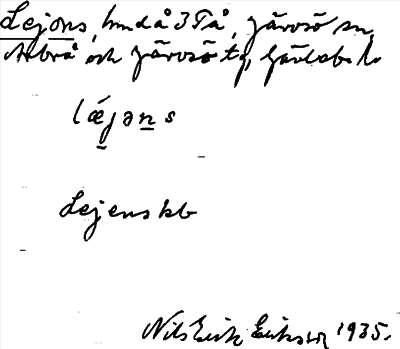 Lejons, hmd å 3 Tå, Järvsö sn,
Arbrå och Järvsö tg, Gävleb. l.
lǽjən s
Lejens kb
Nils Erik Eriksson 1935.